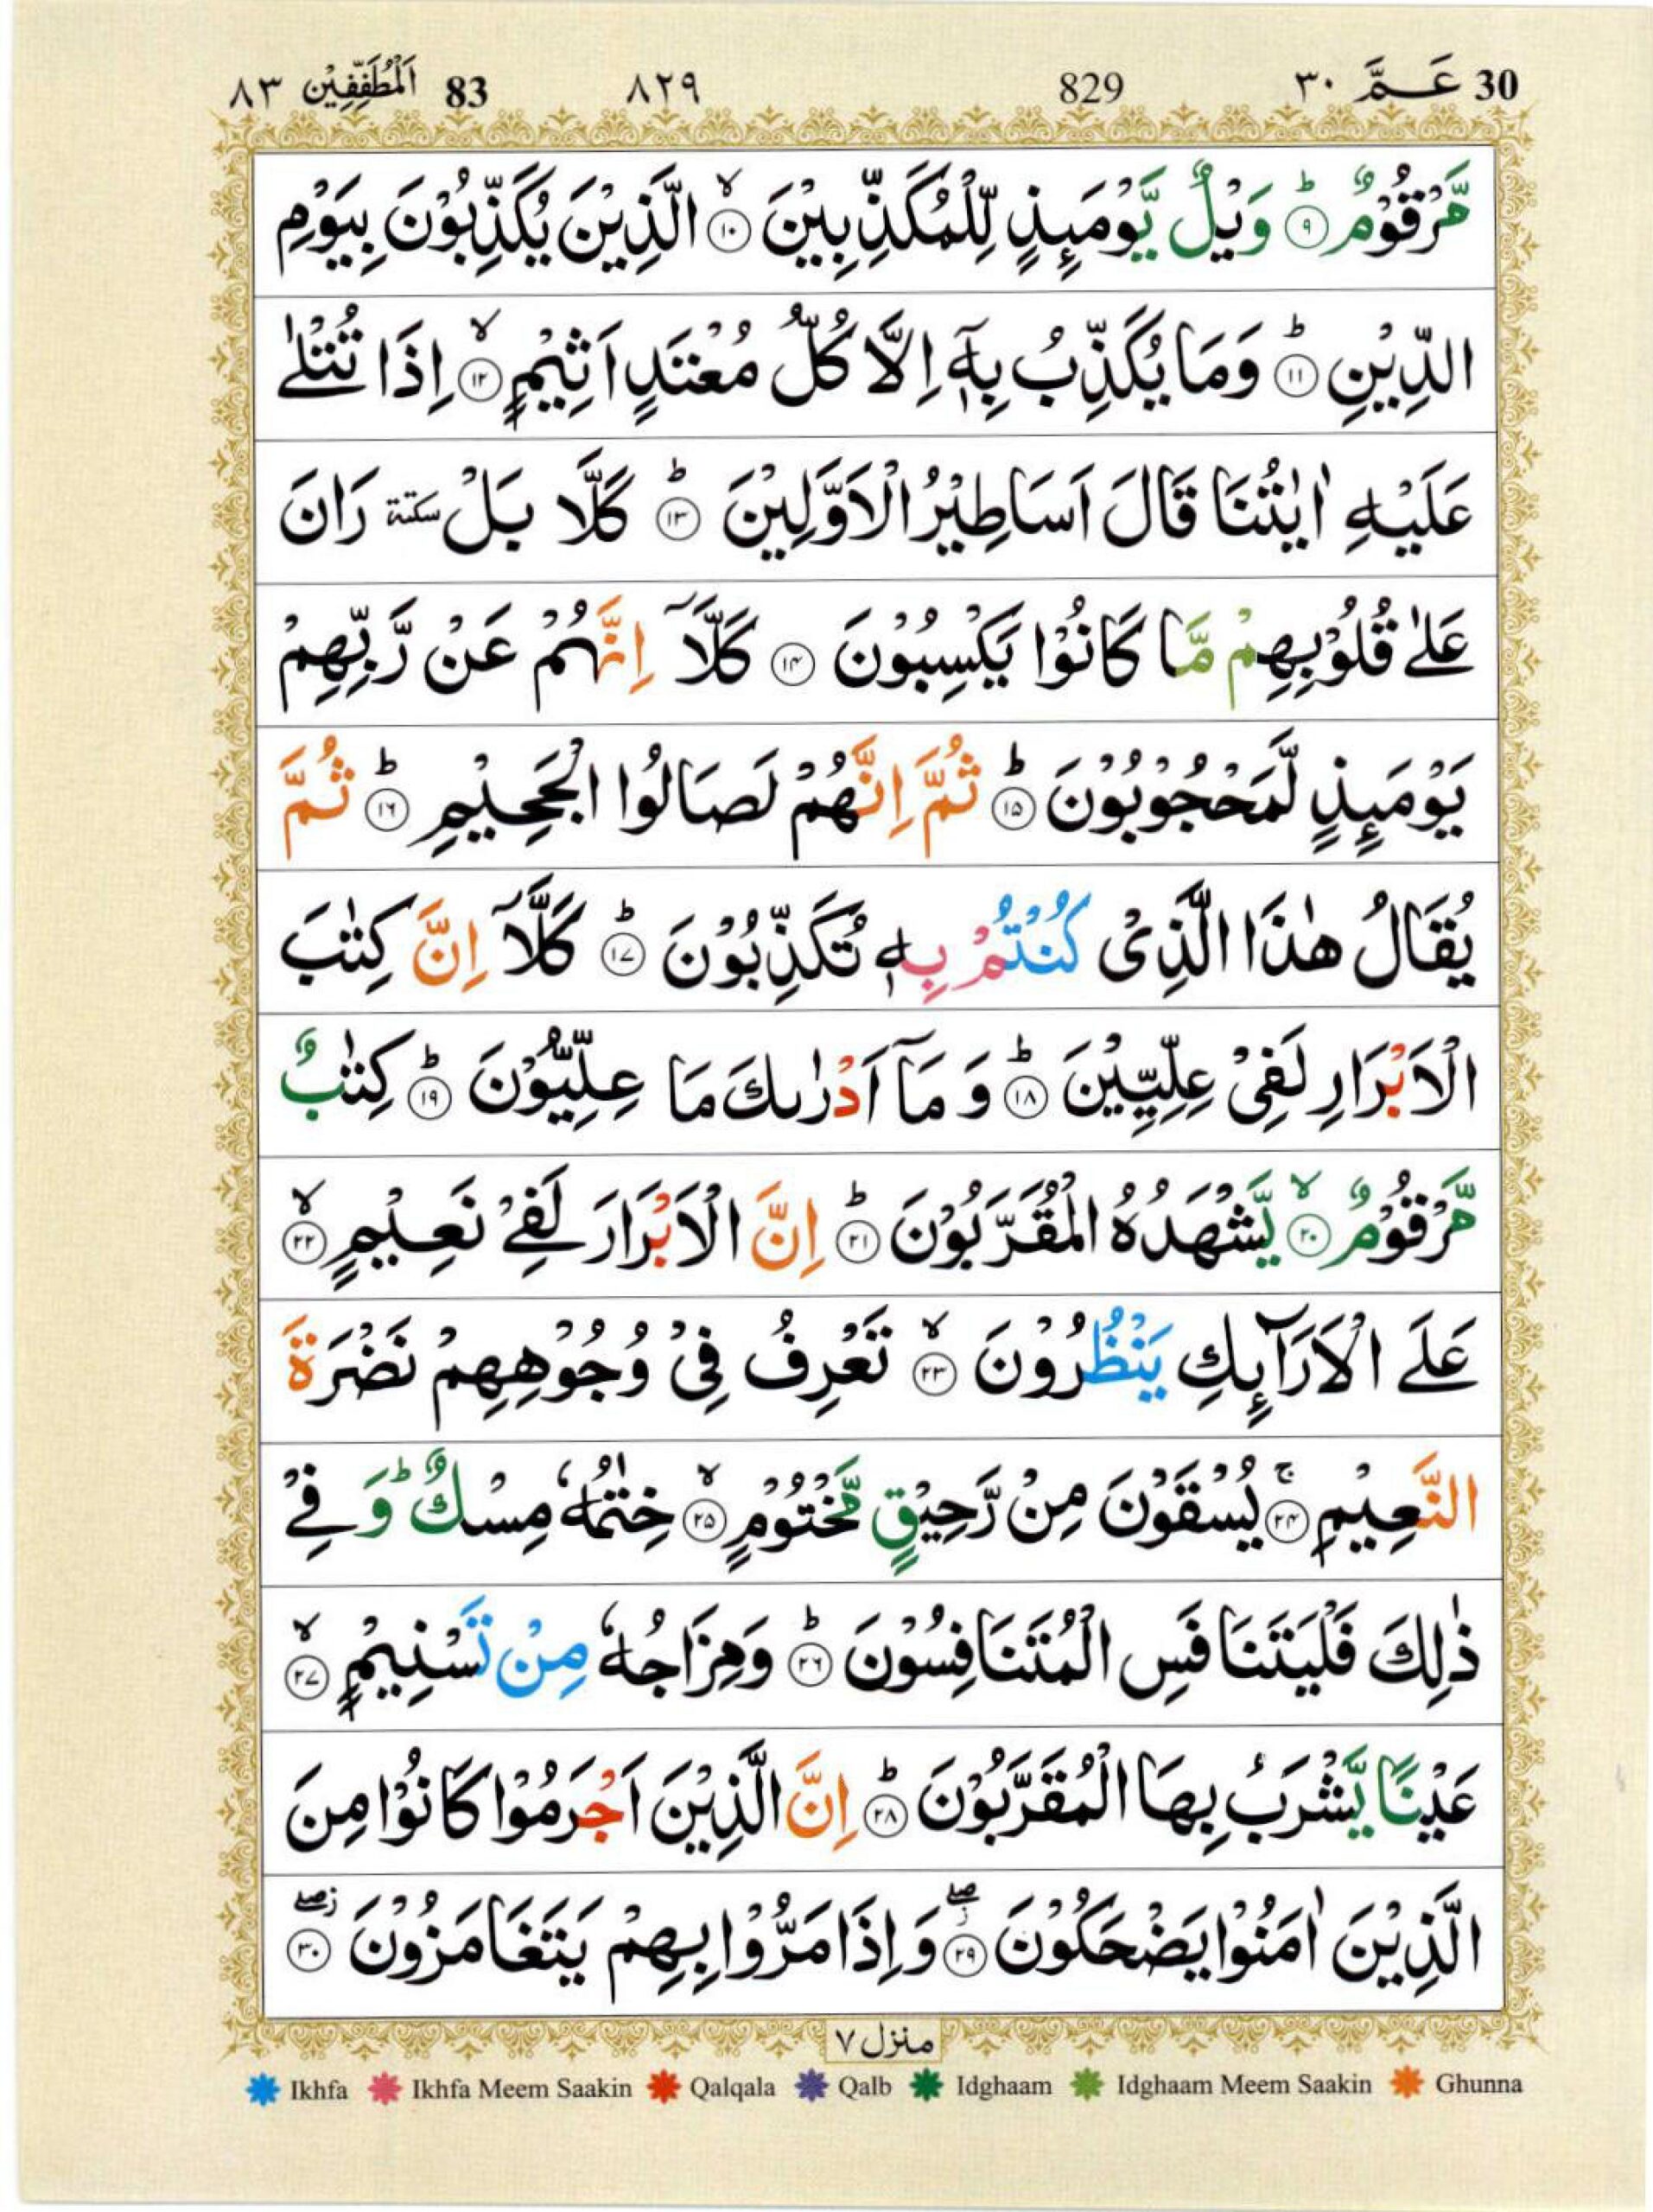 30 عَـمَّ ٣٠ 829 ٨٢٩ 83 اَلْمُطَفِّفِيْن ٨٣
مَّرْقُوْمٌ ؕ‏﴿۹﴾ وَيْلٌ يَّوْمَىِٕذٍ لِّلْمُكَذِّبِيْنَ ۙ‏﴿۱۰﴾ الَّذِيْنَ يُكَذِّبُوْنَ بِيَوْمِ
الدِّيْنِ ؕ‏﴿۱۱﴾ وَمَا يُكَذِّبُ بِهٖۤ اِلَّا كُلُّ مُعْتَدٍ اَثِيْمٍ ۙ‏﴿۱۲﴾ اِذَا تُتْلٰى
عَلَيْهِ اٰيٰتُنَا قَالَ اَسَاطِيْرُ الْاَوَّلِيْنَ ؕ‏﴿۱۳﴾ كَلَّا بَلْ سكتة رَانَ
عَلٰى قُلُوْبِهِمْ مَّا كَانُوْا يَكْسِبُوْنَ‏﴿۱۴﴾ كَلَّاۤ اِنَّهُمْ عَنْ رَّبِّهِمْ
يَوْمَىِٕذٍ لَّمَحْجُوْبُوْنَ ؕ‏﴿۱۵﴾ ثُمَّ اِنَّهُمْ لَصَالُوا الْجَحِيْمِ ؕ‏﴿۱۶﴾ ثُمَّ
يُقَالُ هٰذَا الَّذِىْ كُنْتُمْ بِهٖ تُكَذِّبُوْنَ ؕ‏﴿۱۷﴾ كَلَّاۤ اِنَّ كِتٰبَ
الْاَبْرَارِ لَفِىْ عِلِّيِّيْنَ ؕ‏﴿۱۸﴾ وَمَاۤ اَدْرٰىكَ مَا عِلِّيُّوْنَ ؕ‏﴿۱۹﴾ كِتٰبٌ
مَّرْقُوْمٌ ۙ‏﴿۲۰﴾ يَّشْهَدُهُ الْمُقَرَّبُوْنَ ؕ‏﴿۲۱﴾ اِنَّ الْاَبْرَارَ لَفِىْ نَعِيْمٍ ۙ‏﴿۲۲﴾
عَلَى الْاَرَآىِٕكِ يَنْظُرُوْنَ ۙ‏﴿۲۳﴾ تَعْرِفُ فِىْ وُجُوْهِهِمْ نَضْرَةَ
النَّعِيْمِ ۚ‏﴿۲۴﴾ يُسْقَوْنَ مِنْ رَّحِيْقٍ مَّخْتُوْمٍ ۙ‏﴿۲۵﴾ خِتٰمُهٗ مِسْكٌ ؕ وَفِىْ
ذٰلِكَ فَلْيَتَنَافَسِ الْمُتَنَافِسُوْنَ ؕ‏﴿۲۶﴾ وَمِزَاجُهٗ مِنْ تَسْنِيْمٍ ۙ‏﴿۲۷﴾
عَيْنًا يَّشْرَبُ بِهَا الْمُقَرَّبُوْنَ ؕ‏﴿۲۸﴾ اِنَّ الَّذِيْنَ اَجْرَمُوْا كَانُوْا مِنَ
الَّذِيْنَ اٰمَنُوْا يَضْحَكُوْنَ ۖز‏﴿۲۹﴾ وَاِذَا مَرُّوْا بِهِمْ يَتَغَامَزُوْنَ ۖز‏﴿۳۰﴾
منزل ٧
Ikhfa Ikhfa Meem Saakin Qalqala Qalb Idghaam Idghaam Meem Saakin Ghunna